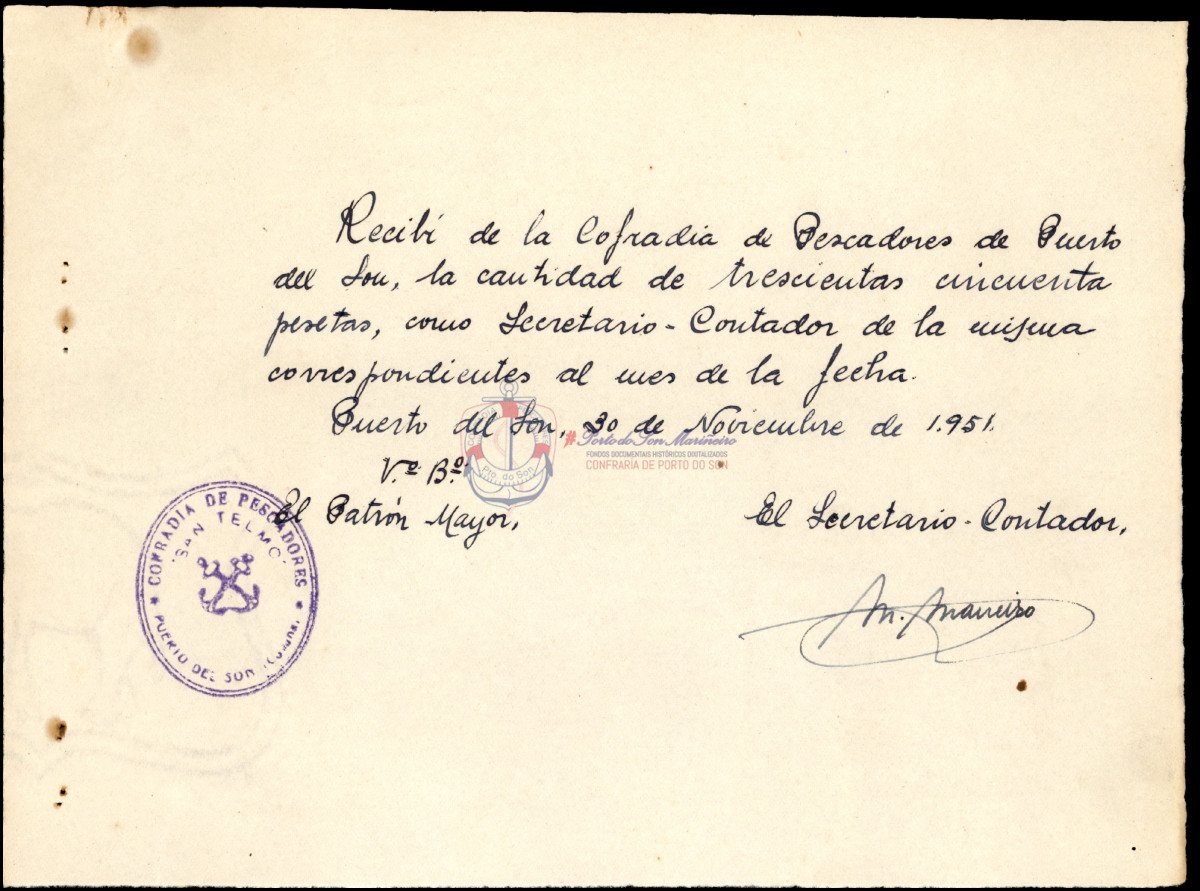 Recibí de la Cofradia de Pescadores de Puerto
del Son, la cantidad de trescientas cincuenta
pesetas, como Secretario-Contador de la misma
correspondientes al mes de la fecha.
Puerto del Son, 30 de Noviembre de 1.951.
#Porto do Son Mariñeiro
FONDOS DOCUMENTAIS HISTÓRICOS DIXITALIZADOS
CONFRARIA DE PORTO DO SON
Pto. do Son
V.º B.º
El Patrón Mayor,
El Secretario-Contador,
COFRADIA DE PESCADORES
"SAN TELMO"
PUERTO DEL SON
M. Maneiro